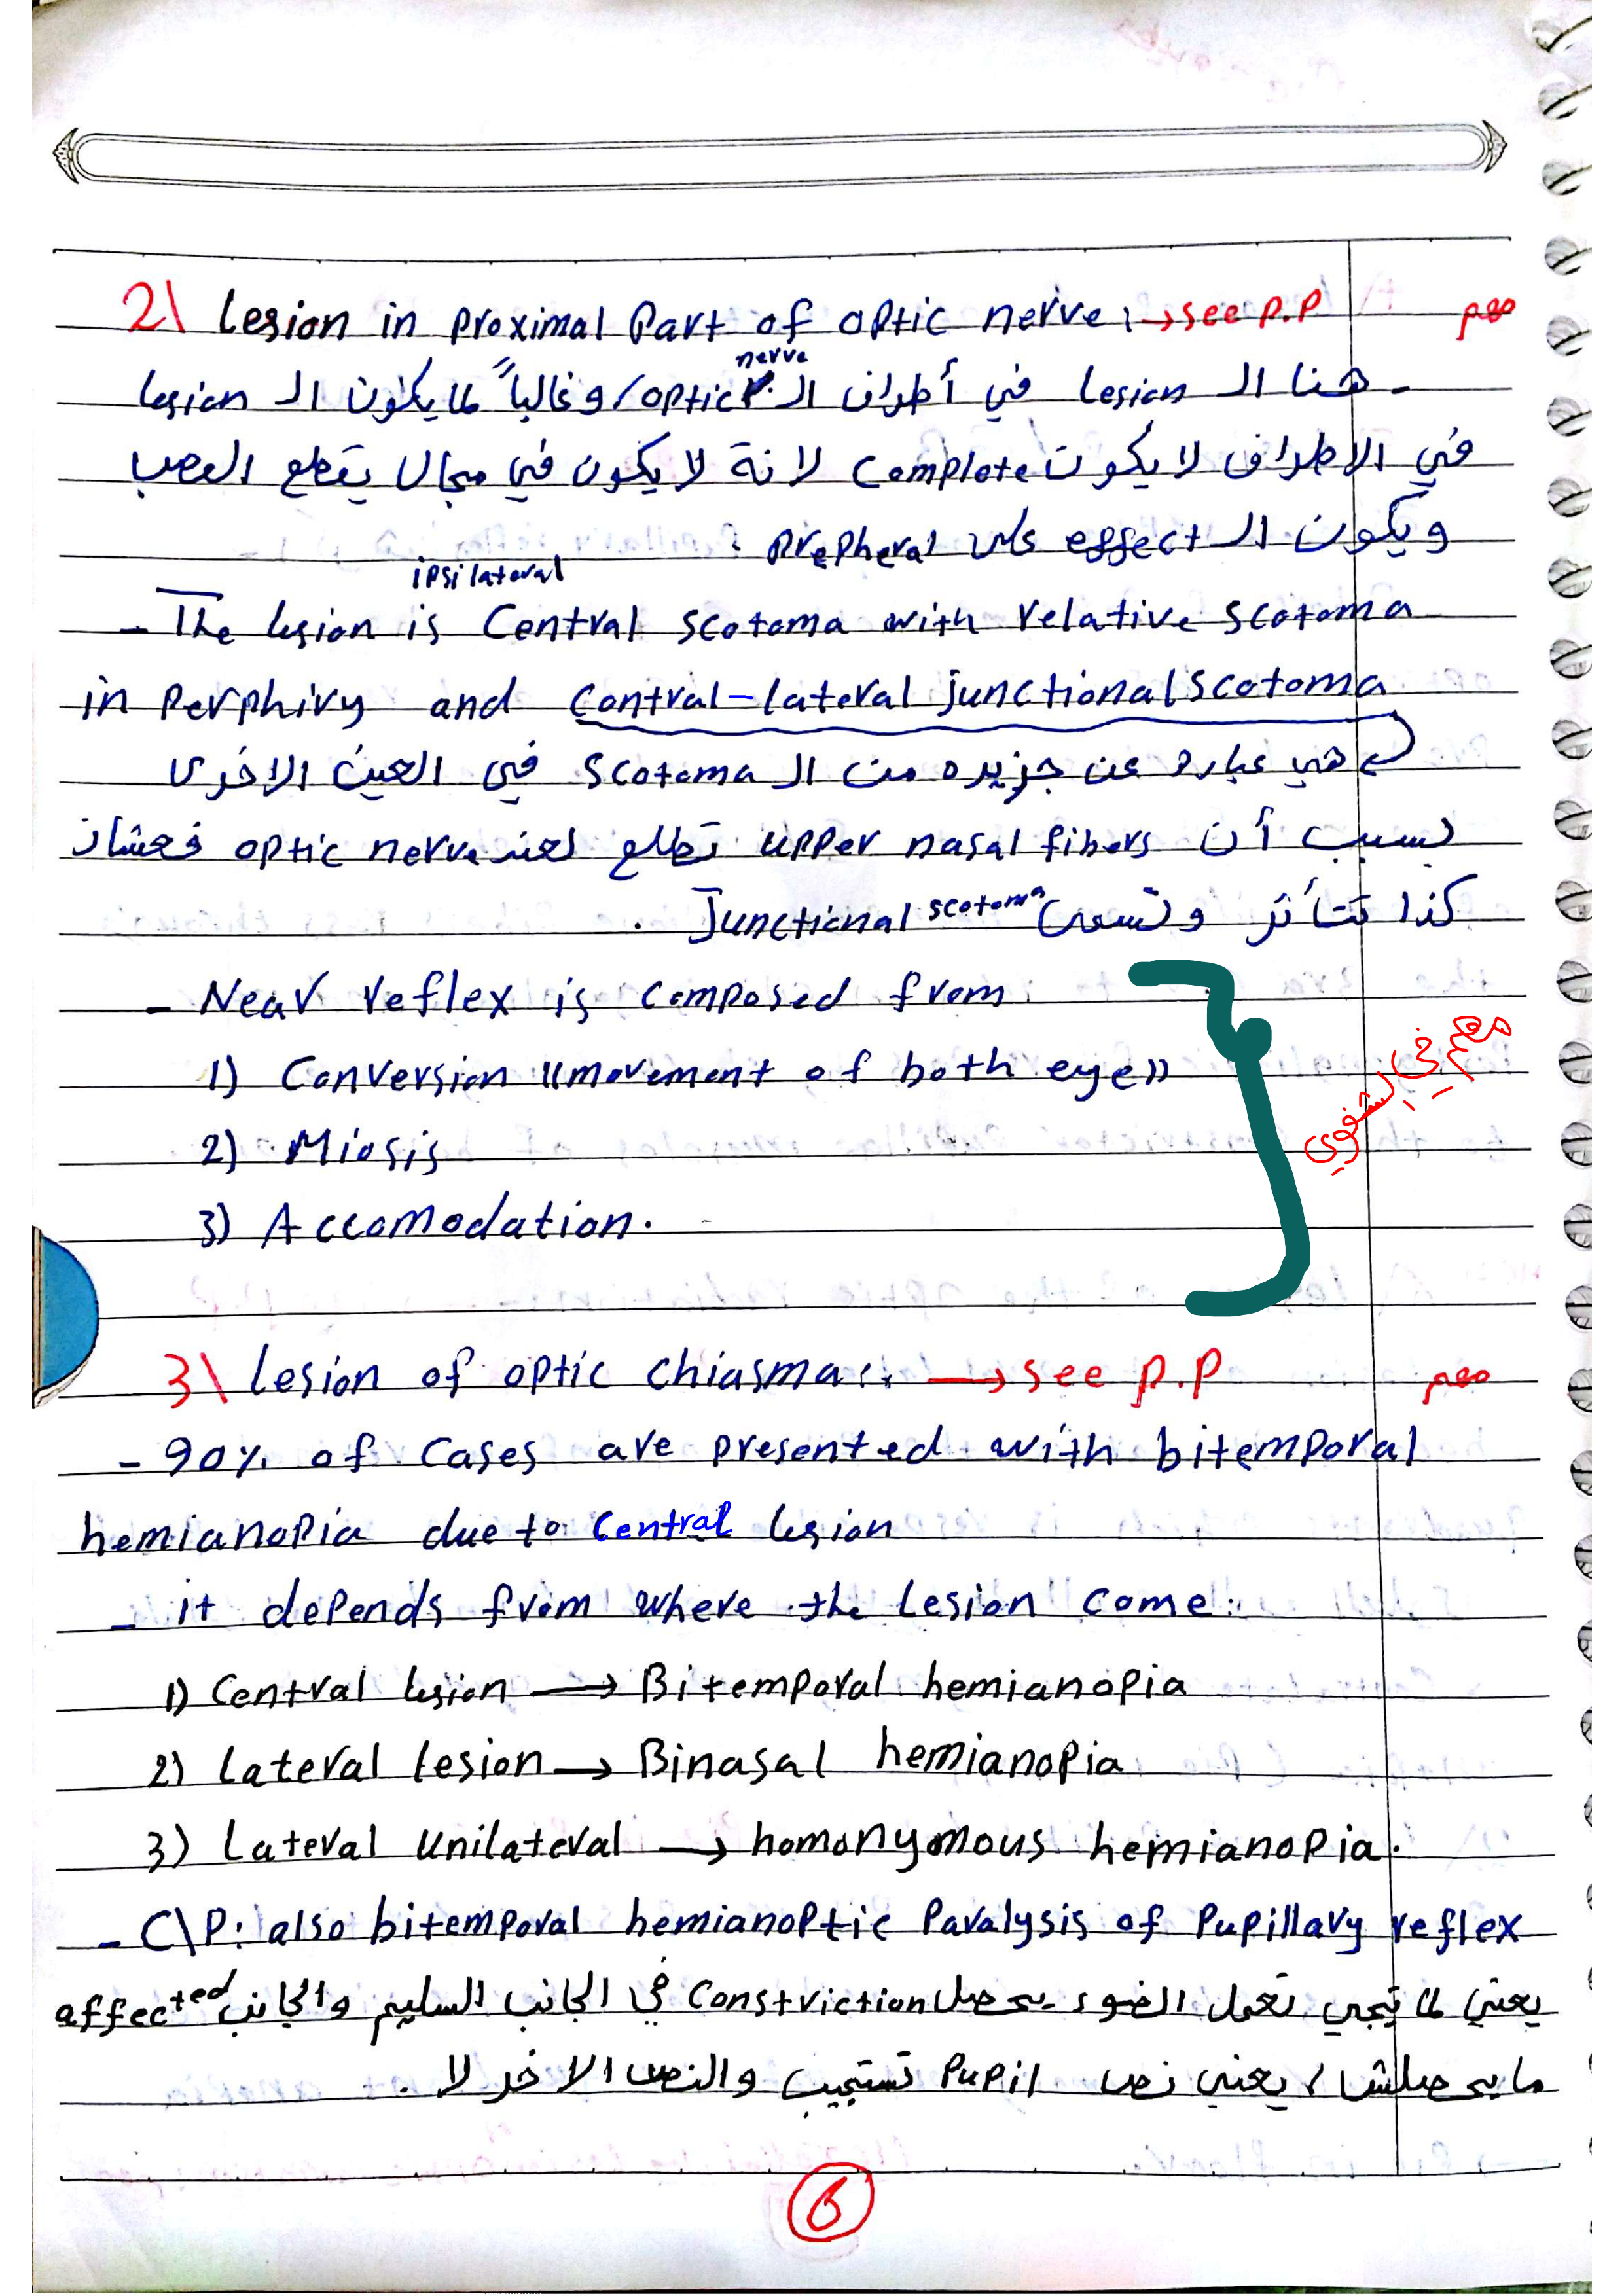 2\ Lesion in proximal Part of optic nerve: →see P.P مهم
- هنا الـ Lesion في أطراف الـ optic nerve / وغالباً لما يكون الـ lesion
في الاطراف لا يكون complete لانة لا يكون في مجال يقطع العصب
ويكون الـ effect على Prepheral .
- The lesion is ipsilateral Central scotoma with relative scotoma
in Perphiry and Contral-lateral junctional scotoma
هي عباره عن جزيره من الـ scotoma في العين الاخرى
بسبب أن upper nasal fibers تطلع لعند optic nerve فعشان
كذا تتأثر وتسمى Junctional scotoma .
- Near reflex is composed from
1) Conversion ((movement of both eye))
2) Miosis
3) Accomodation.
مهم في الشفوي
3\ Lesion of optic chiasma: → see P.P مهم
- 90% of Cases are presented with bitemporal
hemianopia due to Central lesion
- it depends from where the Lesion come:
1) Central lesion → Bitemporal hemianopia
2) Lateral lesion → Binasal hemianopia
3) Lateral Unilateral → homonymous hemianopia.
- C\P: also bitemporal hemianoptic Paralysis of Pupillary reflex
يعني لما تيجي تعمل الضوء يحصل Constriction في الجانب السليم والجانب affected
ما يحصلش / يعني نص Pupil تستجيب والنص الاخر لا .
6